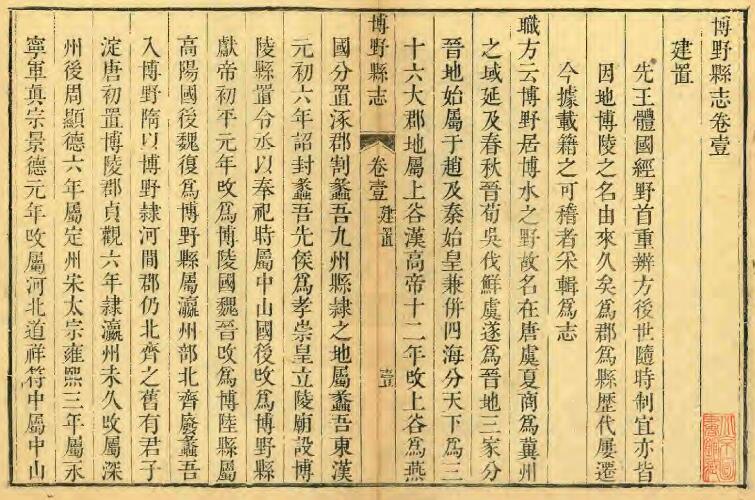 博野縣志卷壹
建置
先王體國經野首重辨方後世隨時制宜亦皆
因地博陵之名由來久矣為郡為縣歷代屢遷
今據載籍之可稽者釆輯為志
職方云博野居博水之野故名在唐虞夏商為冀州
之域延及春秋晉荀吳伐鮮虞遂為晉地三家分
晉地始屬于趙及秦始皇兼併四海分天下為三
十六大郡地屬上谷漢高帝十二年攺上谷為燕
博野縣志 卷壹 建置 壹
國分置涿郡割蠡吾九州縣隸之地屬蠡吾東漢
元初六年詔封蠡吾先侯為孝崇皇立陵廟設博
陵縣置令丞以奉祀時屬中山國後攺為博野縣
獻帝初平元年攺為博陵國魏晉攺為博陸縣屬
高陽國後魏復為博野縣屬瀛州部北齊廢蠡吾
入博野隋以博野隸河間郡仍北齊之舊有君子
淀唐初置博陵郡貞觀六年隸瀛州未久攺屬深
州後周顯德六年屬定州宋太宗雍熙三年屬永
寧軍真宗景德元年攺屬河北道祥符中屬中山